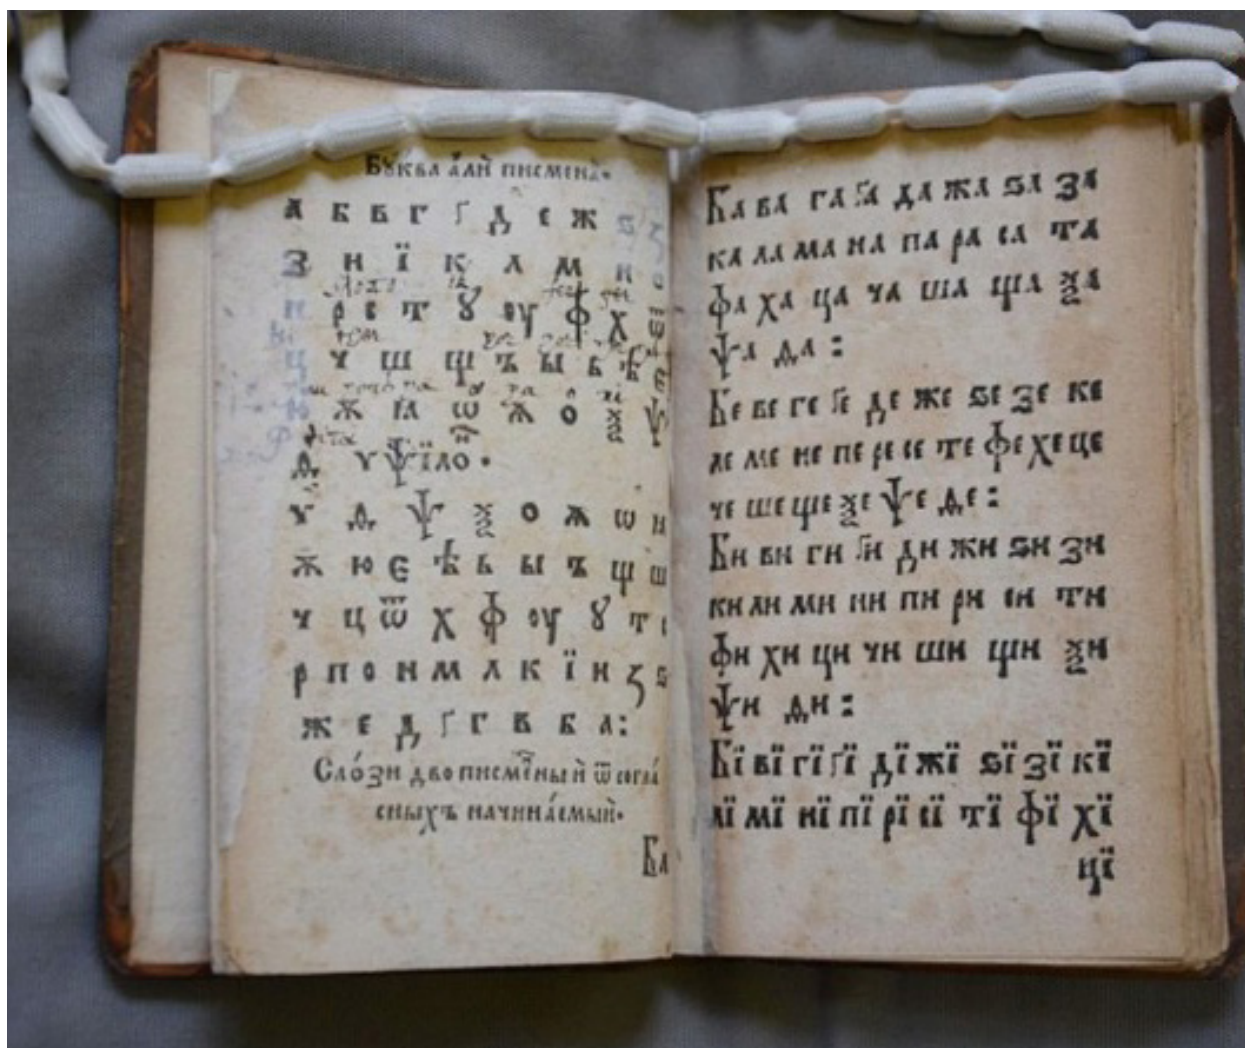 Бꙋ́ква а҆́лй писмена̀.
а б в г ґ д є ж ѕ ꙁ
З и ї к л м н о
п р с т ꙋ оу ф х ѿ
ц ч ш щ ъ ы ь ѣ
ю ѫ ѩ ѡ ѫ о ѯ ѱ
ѳ ѵ ѱїло̑.
ѵ ѳ ѱ ѯ о ѫ ѡ ꙗ
ѫ ю є ѣ ь ы ъ щ ш
ч ц ѿ х ф оу ꙋ т с
р п о н м л к ї и ꙁ ѕ
ж є д ґ г в б а:
Сло́зи двописме́ный ѿ согла́
сныхъ начина́емый.
Ба
Ба ва га ґа да жа ѕа за
ка ла ма на па ра са та
фа ха ца ча ша ща ѯа
ѱа ѳа :
Бе ве ге ґе де же ѕе зе ке
ле ме не пе ре се те фе хе це
че ше ще ѯе ѱе ѳе :
Би ви ги ґи ди жи ѕи зи
ки ли ми ни пи ри си ти
фи хи ци чи ши щи ѯи
ѱи ѳи :
Бї вї гї ґї дї жї ѕї зї кї
лї мї нї пї рї сї тї фї хї
цї